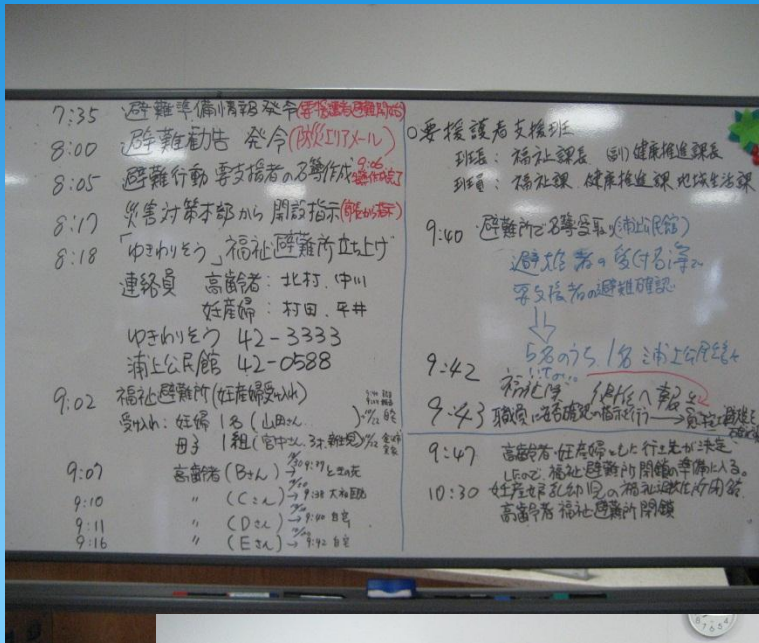 7:35 避難準備情報発令(要援護者避難開始)
8:00 避難勧告 発令(防災エリアメール)
8:05 避難行動 要支援者の名簿作成 9:06
8:17 災害対策本部から 開設指示
8:18 「ゆきわりそう」福祉避難所立ち上げ
連絡員 高齢者:北村、中川
妊産婦:村田、平井
ゆきわりそう 42-3333
浦上公民館 42-0588
9:02 福祉避難所(妊産婦受け入れ)
受け入れ:妊婦 1名(山田さん
母子 1組(宮中さん、3才、新生児)
9:07 高齢者(Bさん)→
9:10 〃 (Cさん)→ 9:38
9:11 〃 (Dさん)→ 9:40 自宅
9:16 〃 (Eさん)→ 9:42 自宅
○要援護者支援班
班長:福祉課長 (副)健康推進課長
班員:福祉課 健康推進課 地域生活課
9:40 避難所で名簿受取り(浦上公民館)
避難者の受付名簿で
要支援者の避難確認
5名のうち、1名 浦上公民館に
いない
9:42 福祉課 係長へ報告
9:43 職員に安否確認の指示を行う→
9:47 高齢者・妊産婦ともに行き先が決定
したので、福祉避難所閉鎖の準備に入る。
10:30 妊産婦乳幼児の福祉避難所閉鎖
高齢者福祉避難所閉鎖